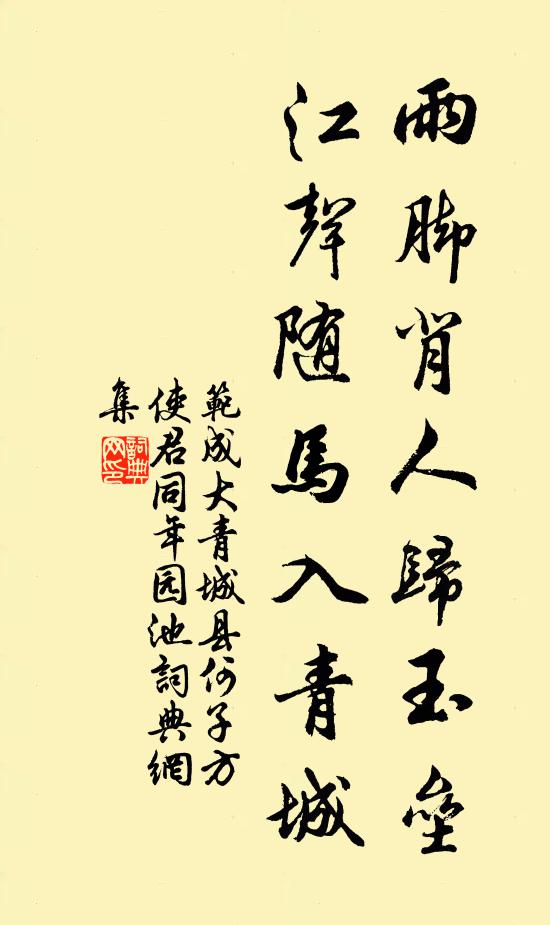 雨脚背人歸玉壘
江聲随馬入青城
範成大青城县何子方
使君同年园池詞典網
集
詞典網印